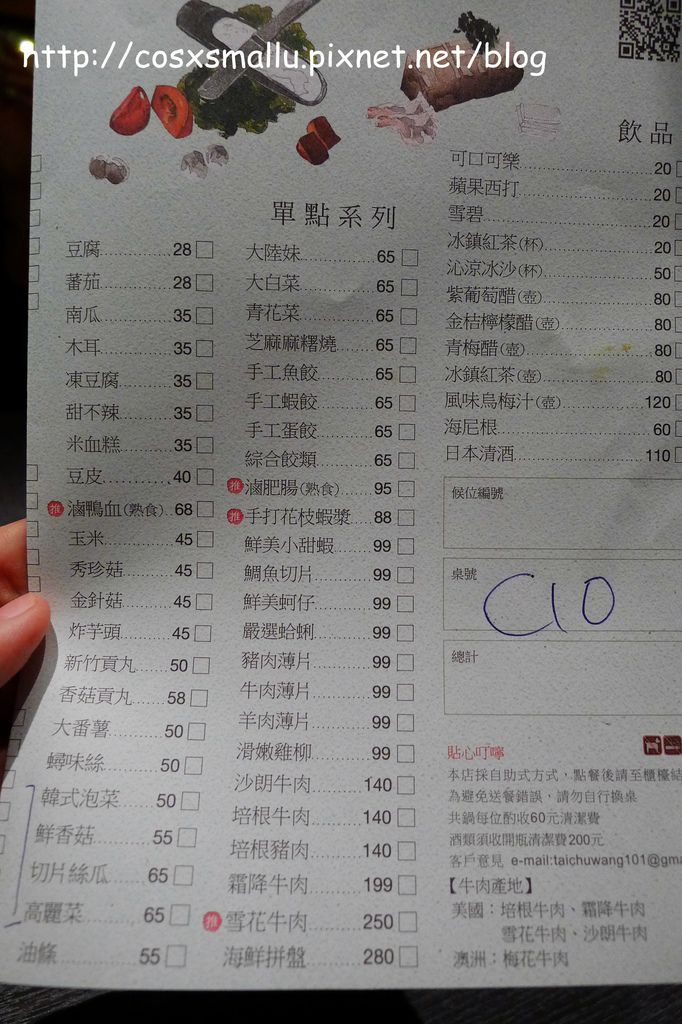 http://cosxsmallu.pixnet.net/blog
單點系列
豆腐 28
蕃茄 28
南瓜 35
木耳 35
凍豆腐 35
甜不辣 35
米血糕 35
豆皮 40
推 滷鴨血(熟食) 68
玉米 45
秀珍菇 45
金針菇 45
炸芋頭 45
新竹貢丸 50
香菇貢丸 58
大番薯 50
蟳味絲 50
韓式泡菜 50
鮮香菇 55
切片絲瓜 65
高麗菜 65
油條 55
大陸妹 65
大白菜 65
青花菜 65
芝麻麻糬燒 65
手工魚餃 65
手工蝦餃 65
手工蛋餃 65
綜合餃類 65
推 滷肥腸(熟食) 95
推 手打花枝蝦漿 88
鮮美小甜蝦 99
鯛魚切片 99
鮮美蚵仔 99
嚴選蛤蜊 99
豬肉薄片 99
牛肉薄片 99
羊肉薄片 99
滑嫩雞柳 99
沙朗牛肉 140
培根牛肉 140
培根豬肉 140
霜降牛肉 199
推 雪花牛肉 250
海鮮拼盤 280
飲品
可口可樂 20
蘋果西打 20
雪碧 20
冰鎮紅茶(杯) 20
沁涼冰沙(杯) 50
紫葡萄醋(壺) 80
金桔檸檬醋(壺) 80
青梅醋(壺) 80
冰鎮紅茶(壺) 80
風味烏梅汁(壺) 120
海尼根 60
日本清酒 110
候位編號
桌號
C10
總計
貼心叮嚀
本店採自助式方式，點餐後請至櫃檯結
為避免送餐錯誤，請勿自行換桌
共鍋每位酌收60元清潔費
酒類須收開瓶清潔費200元
客戶意見 e-mail:taichuwang101@gma
【牛肉產地】
美國：培根牛肉、霜降牛肉
雪花牛肉、沙朗牛肉
澳洲：梅花牛肉